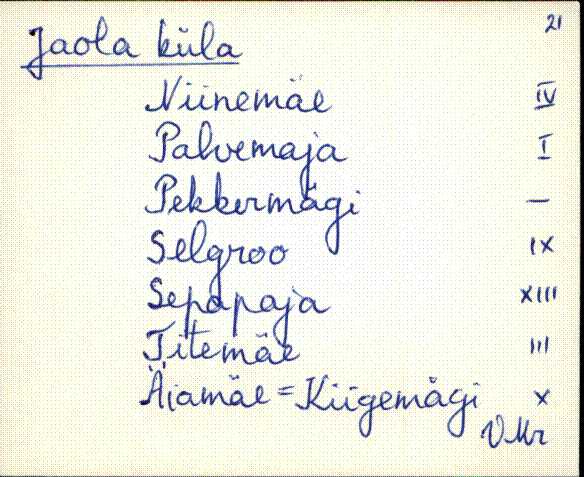 21
Jaola küla
Niinemäe IV
Palvemaja I
Pekkermägi —
Selgroo IX
Sepapaja XIII
Titemäe III
Äiamäe = Kiigemägi X
VMr